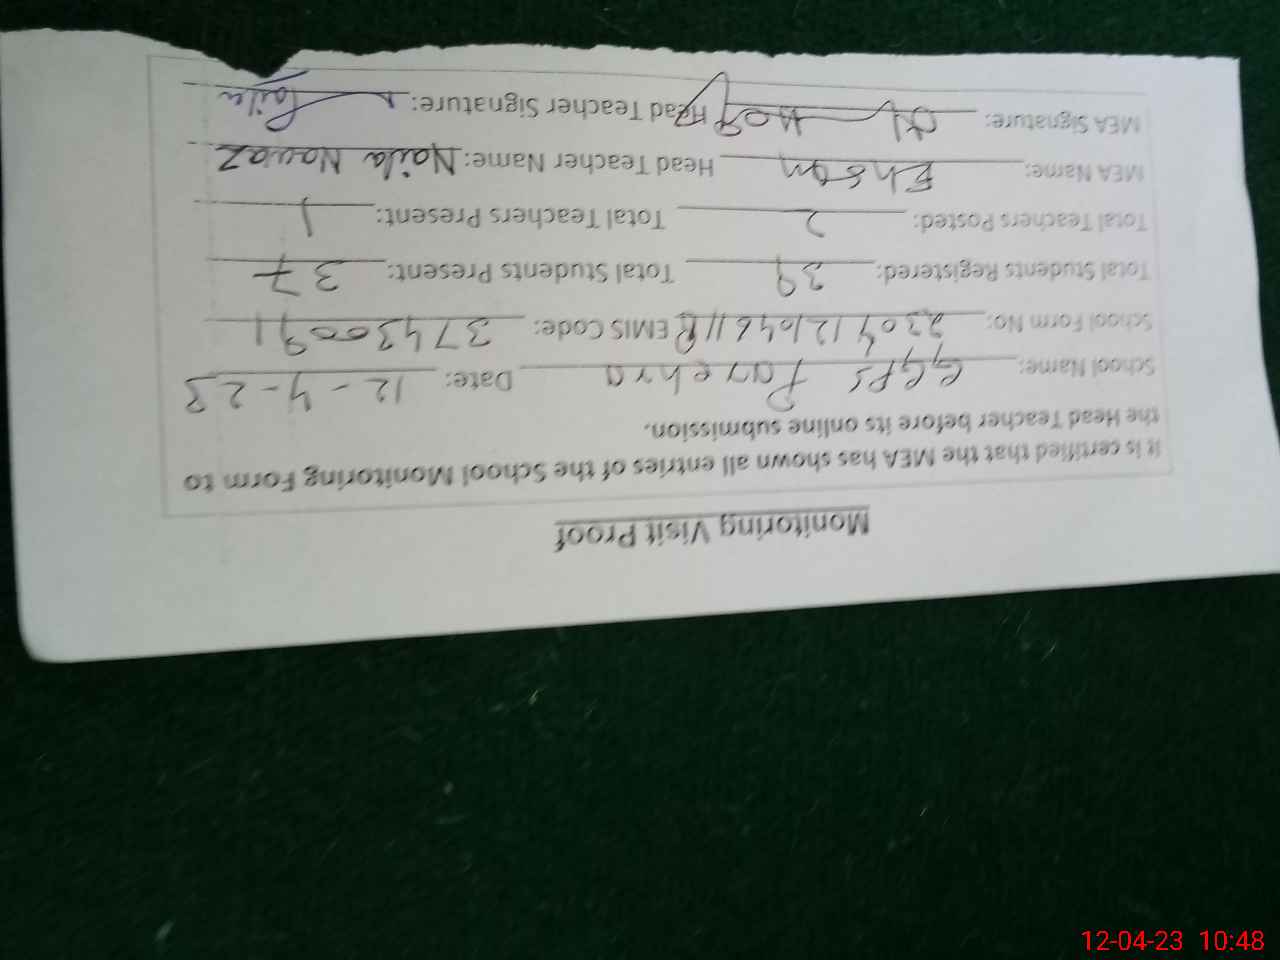 Monitoring Visit Proof
It is certified that the MEA has shown all entries of the School Monitoring Form to
the Head Teacher before its online submission.
School Name: GGPS Parehra Date: 12-4-23
School Form No: EMIS Code: 37430091
Total Students Registered: 39 Total Students Present: 37
Total Teachers Posted: 2 Total Teachers Present: 1
MEA Name: Ehsan Head Teacher Name: Naila Nawaz
MEA Signature: Head Teacher Signature: Naila
12-04-23 10:48